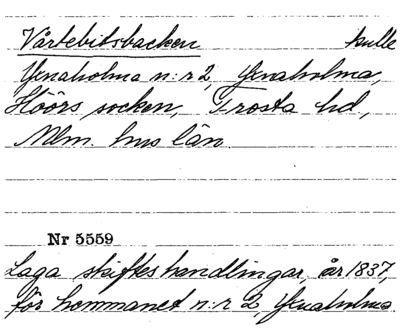 Vårtebitsbacken kulle
Yxnaholma n:r 2, Yxnaholma,
Höörs socken, Frosta hd,
Mlm. hus län.
Nr 5559
Laga skifteshandlingar, år 1837,
för hemmanet n:r 2, Yxnaholma.